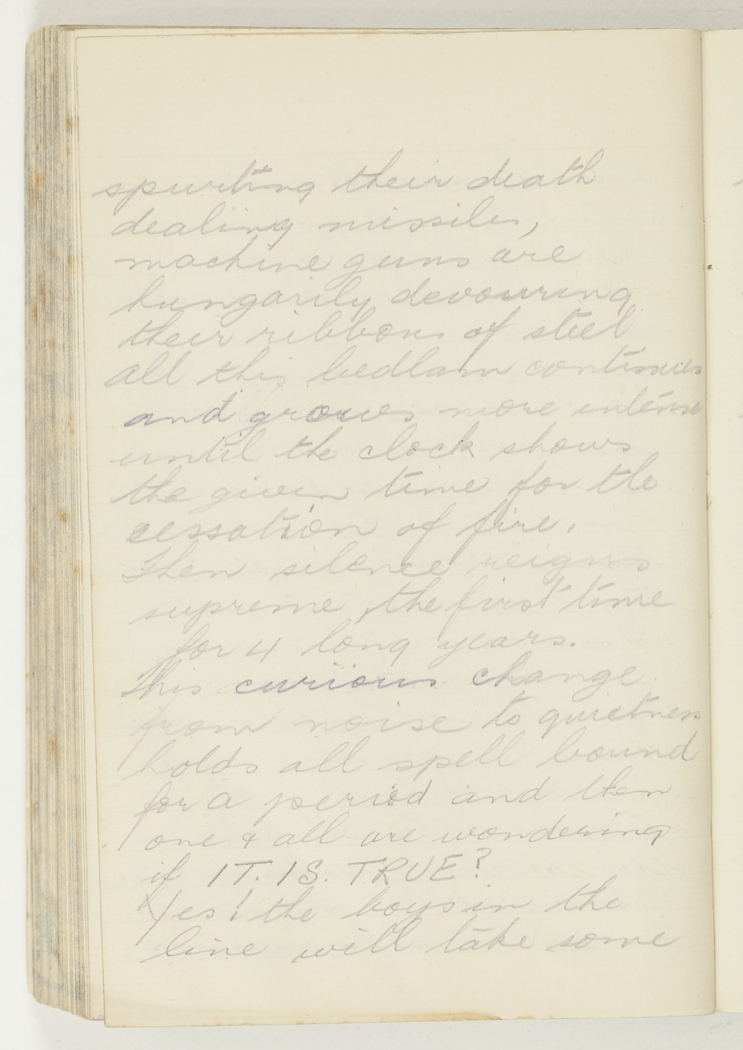 spurting their death
dealing missiles,
machine guns are
hungarily devouring
their ribbons of steel
all this bedlam continues
and grows more intense
until the clock shows
the given time for the
cessation of fire.
Then silence reigns
supreme, the first time
for 4 long years.
This curious change
from noise to quietness
holds all spell bound
for a period and then
one & all are wondering
if IT. IS. TRUE?
Yes! the boys in the
line will take some